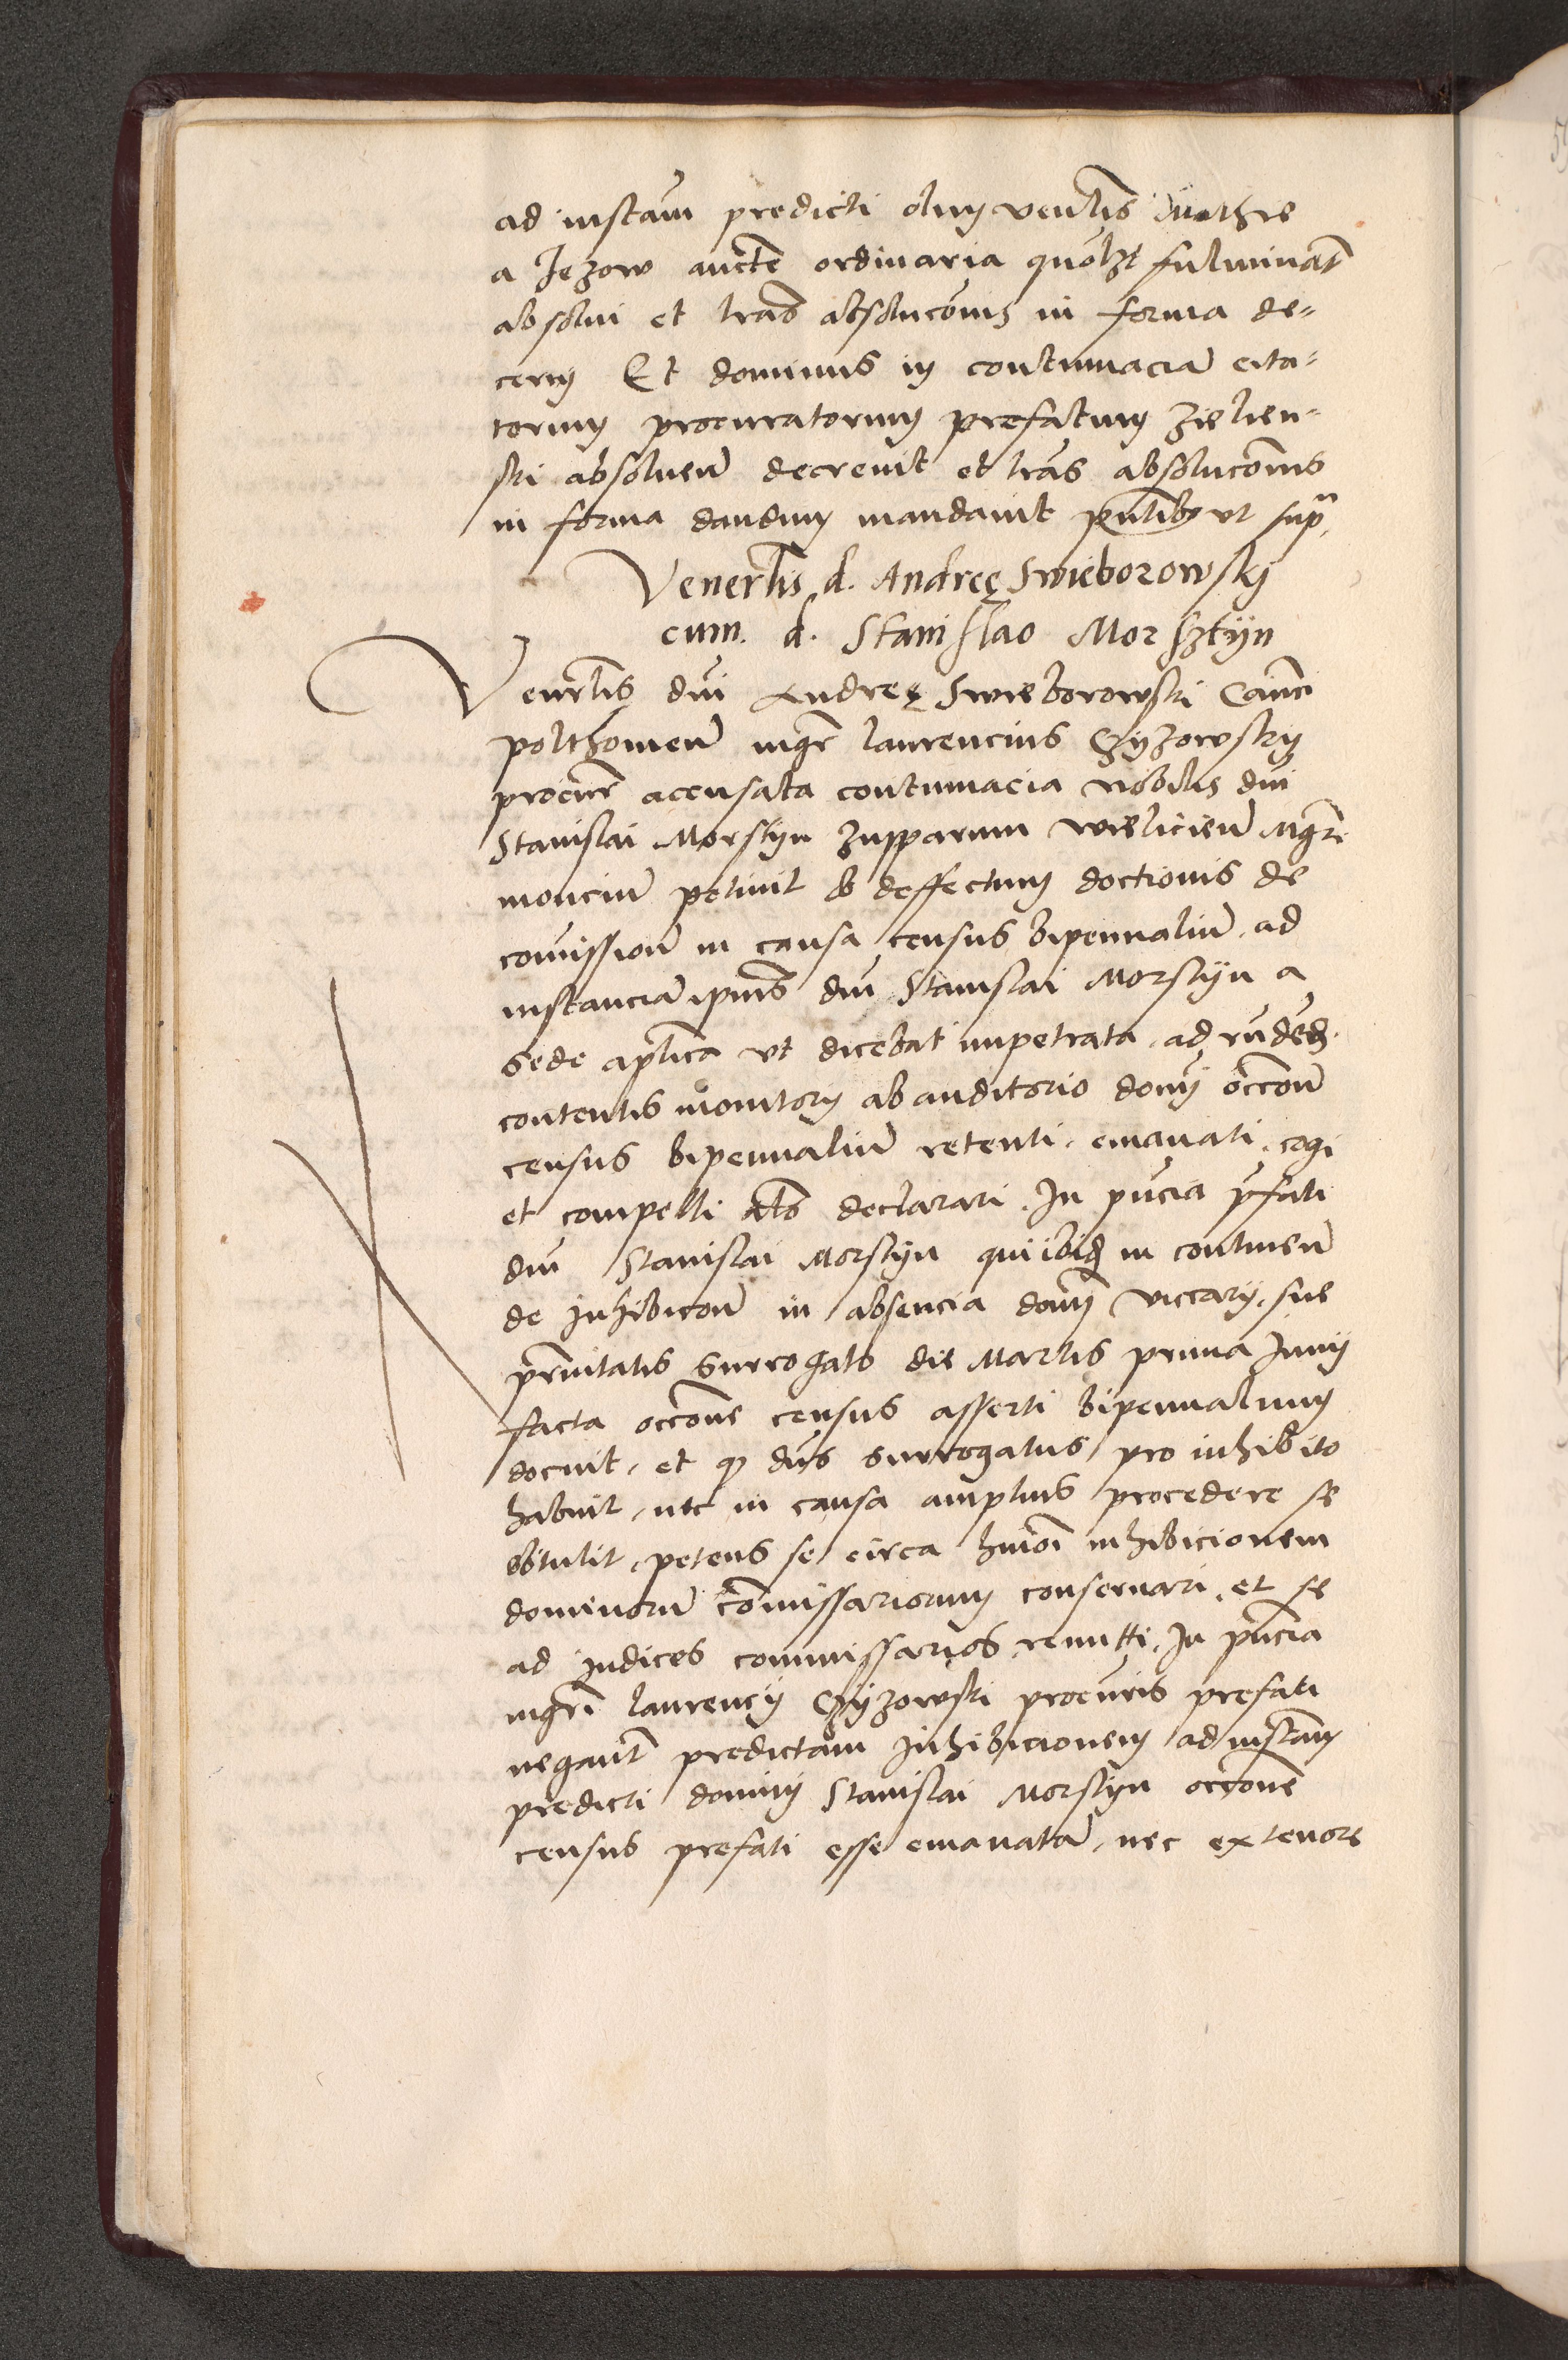 ad instam predicti olim venerlis Mathie
a Jezow aucte ordinaria quolzt fulminat
absolui et lras absoluconis in forma de=
cerni Et dominus in contumacia cita=
torum procuratorum prefatum Zielien=
ski absoluen decreuit et lras absoluconis
in forma dandum mandauit pntibus vt sup
Venerlis d. Andreę Swieborowskj
cum. d. Stanislao Morsztyn
Venerlis dni Andreę Swieborowski Canci
polthouien mgr laurencius Czyzowsky
procur accusata contumacia nobilis dni
Stanislai Morstyn zupparum wielicien Mgri
moncium petiuit ob deffectum doctionis de
comission in causa census bipennalium ad
instancia ipius dni Stanislai Morstyn a
sede aplica vt dicebat impetrata ad
contentis monitorij ab auditorio domini occon
census bipennalium retenti emanati cogi
et compelli declarari. In pncia pfati
dni Stanislai Morstyn qui ibid in continen
de inhibicon in absencia domini vicarij sue
prnitatis surrogato die Martis prima Junij
facta occone census asserti bipennalium
docuit, et q dns surrogatus pro inhibito
habuit, nec in causa amplius procedere se
obtulit, petens se circa hmoi inhibicionem
dominoru commissariorum conseruari, et se
ad judices commissarios remitti. In pncia
mgri laurencij Czyzowski procuris prefati
negant predictam inhibicionem ad instam
predicti domini Stanislai Morstyn occone
census prefati esse emanata, nec ex tenore